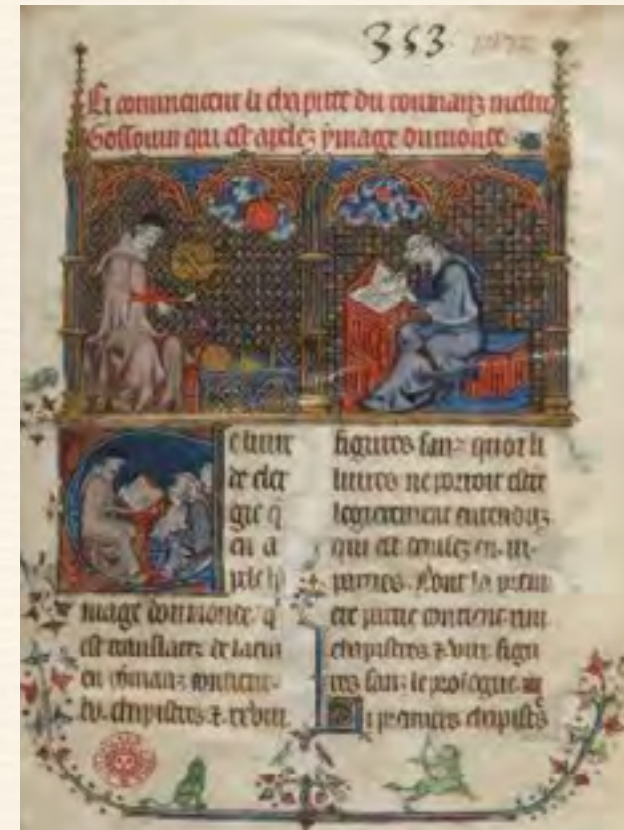 353
Ci commencent li chapitre du roumanz mestre
Gossouin qui est apelez ymage du monde
Ce liure
de cler
gie q
en a
pele ly
mage dou monde q
est translatez de latin
en romanz contient
lv. chapistres &
figures sanz quoi li
liures ne porroit estre
legierement entenduz
qui est
parties. dont la premi
ere partie contient xiiii
chapistres & viii figu
res sanz le prologue
Li premiers chapistres